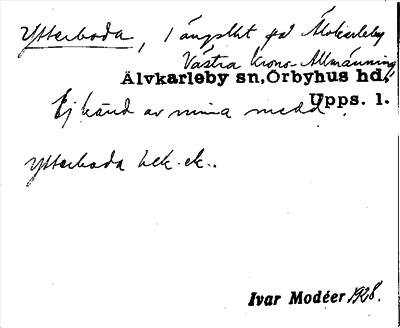 Ytterboda, 1 ängslht på Älvkarleby
Västra Krono-Allmänning
Älvkarleby sn, Örbyhus hd.
Upps. l.
Ej känd av mina medd.
Ytterboda hek. ek..
Ivar Modéer 1928.